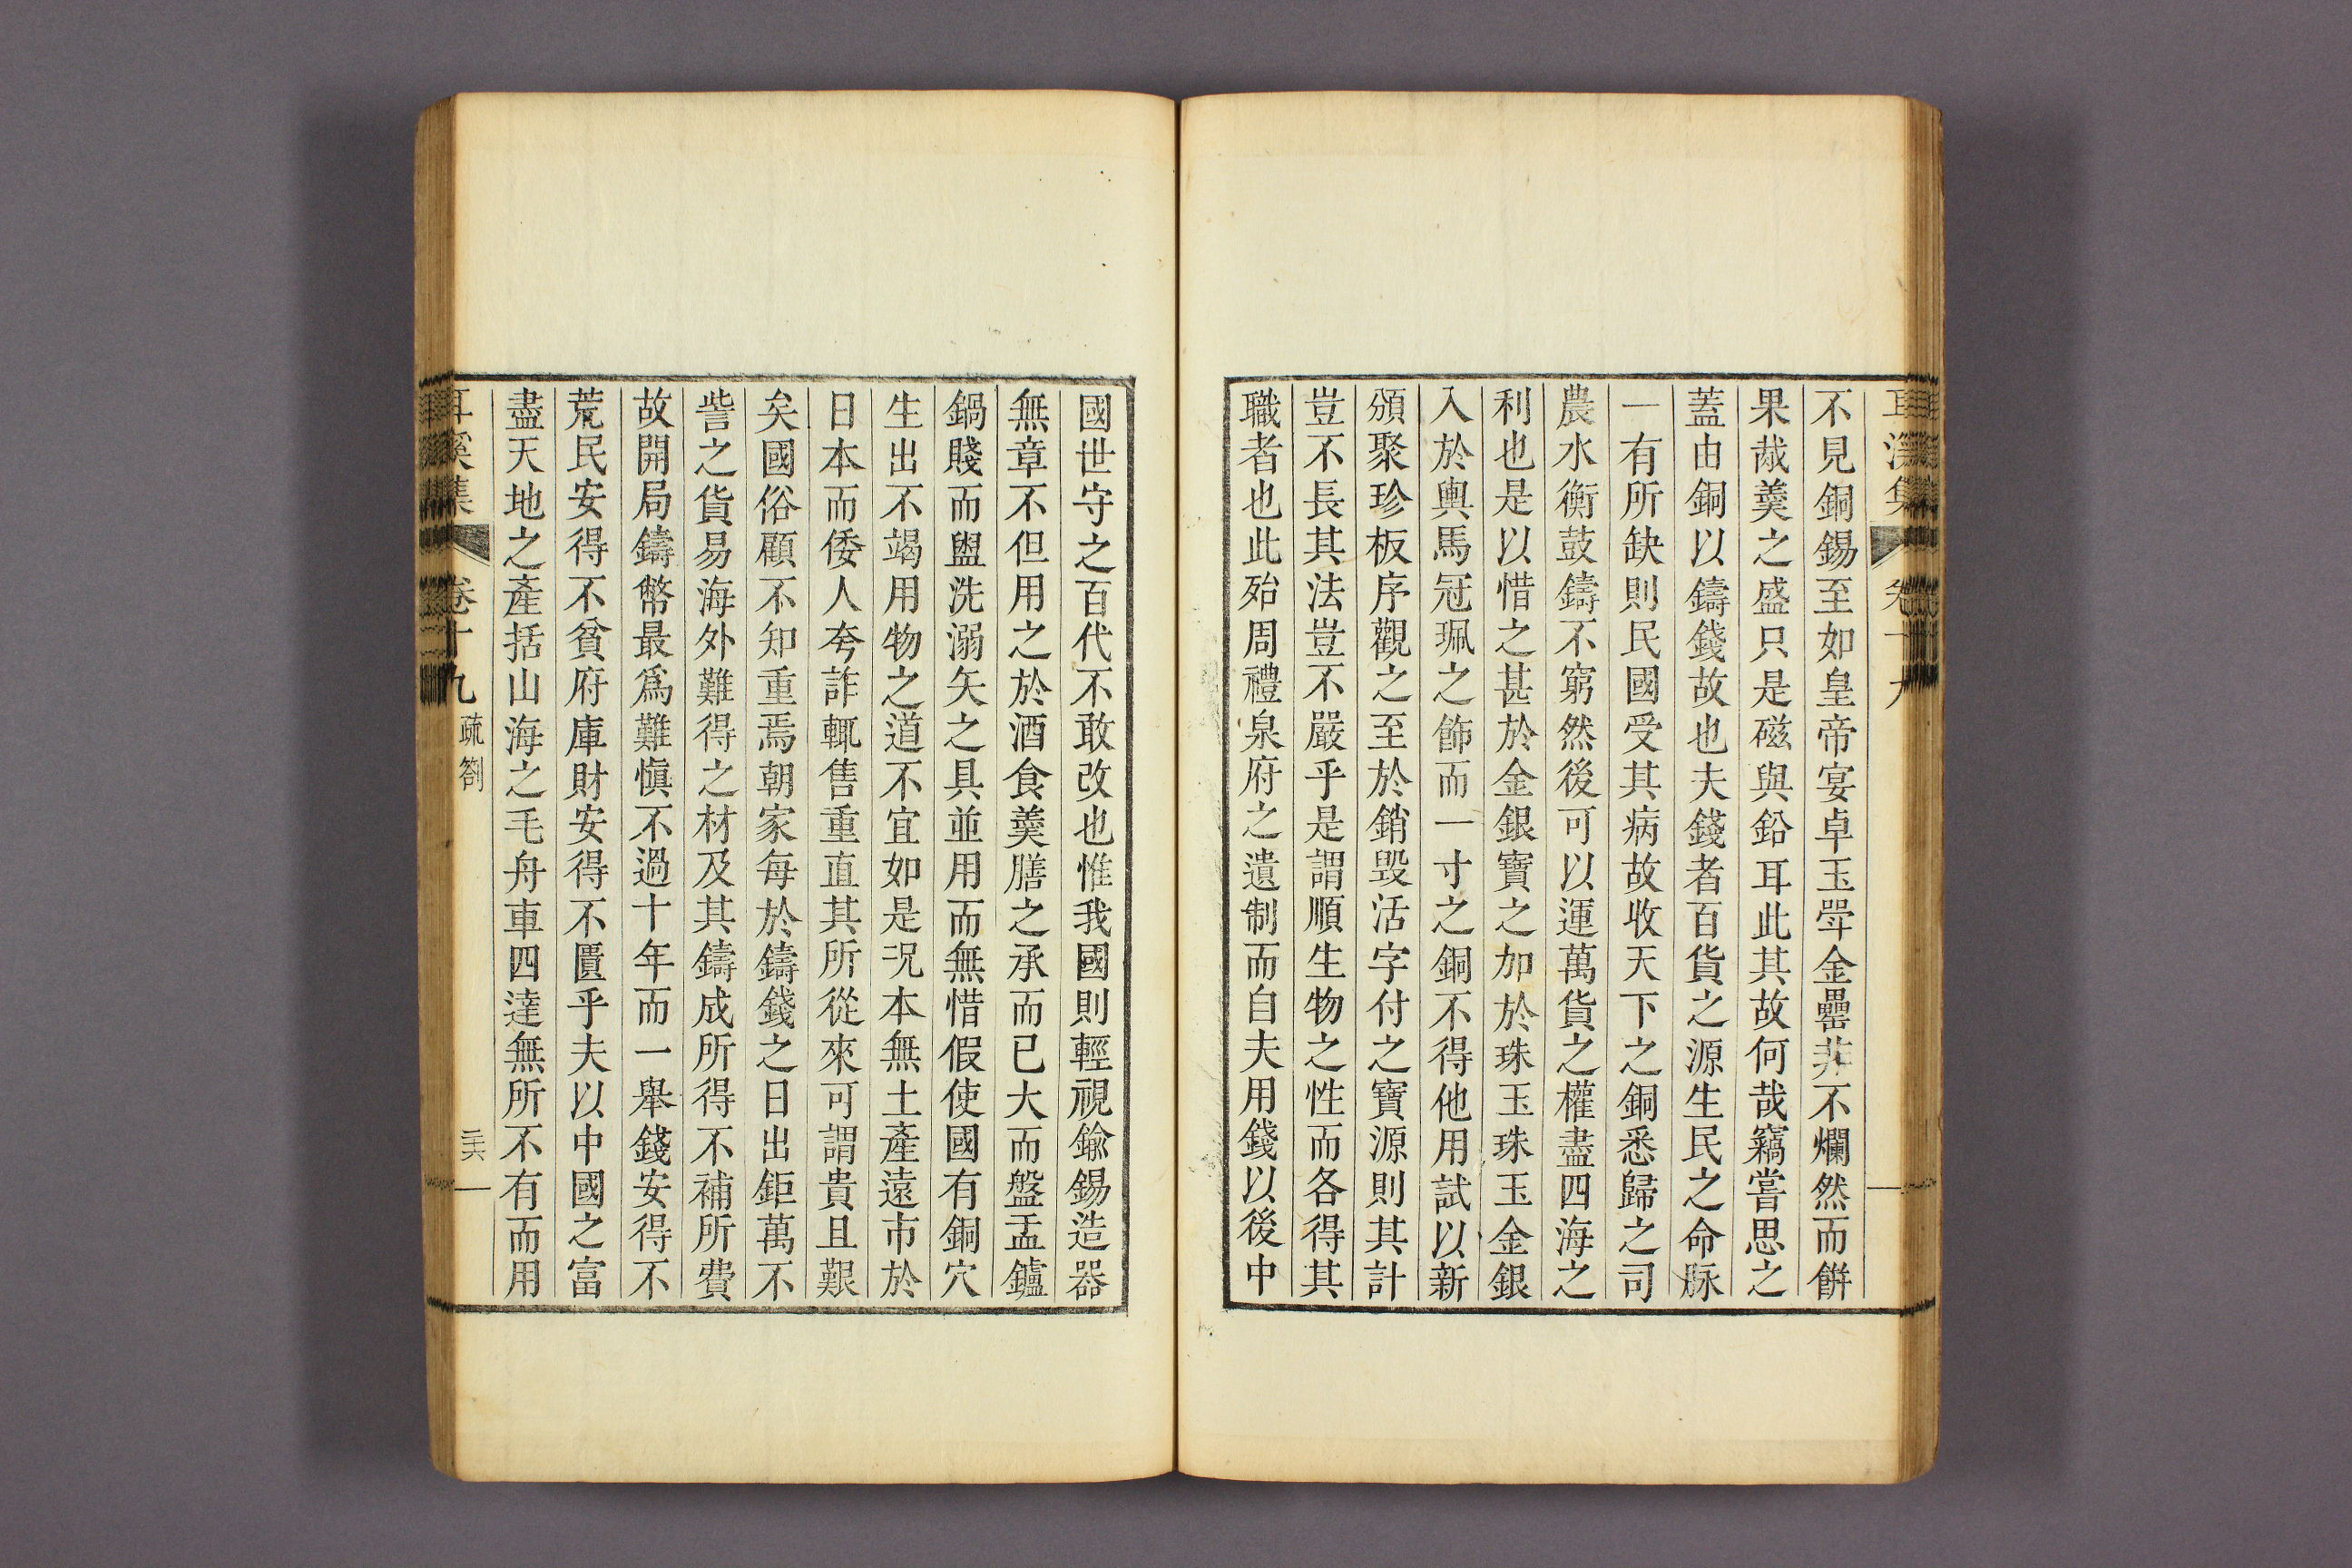 耳溪集 卷十九
不見銅錫至如皇帝宴卓玉斝金罍非不爛然而餠
果胾羹之盛只是磁與鉛耳此其故何哉竊嘗思之
蓋由銅以鑄錢故也夫錢者百貨之源生民之命脉
一有所缺則民國受其病故收天下之銅悉歸之司
農水衡鼓鑄不窮然後可以運萬貨之權盡四海之
利也是以惜之甚於金銀寶之加於珠玉珠玉金銀
入於輿馬冠珮之飾而一寸之銅不得他用試以新
頒聚珍板序觀之至於銷毀活字付之寶源則其計
豈不長其法豈不嚴乎是謂順生物之性而各得其
職者也此殆周禮泉府之遺制而自夫用錢以後中
國世守之百代不敢改也惟我國則輕視鍮錫造器
無章不但用之於酒食羹膳之承而已大而盤盂鑪
鍋賤而盥洗溺矢之具並用而無惜假使國有銅穴
生出不竭用物之道不宜如是况本無土產遠市於
日本而倭人夸詐輒售重直其所從來可謂貴且艱
矣國俗顧不知重焉朝家每於鑄錢之日出鉅萬不
訾之貨易海外難得之材及其鑄成所得不補所費
故開局鑄幣最爲難愼不過十年而一舉錢安得不
荒民安得不貧府庫財安得不匱乎夫以中國之富
盡天地之產括山海之毛舟車四達無所不有而用
耳溪集 卷十九 疏箚 二十六